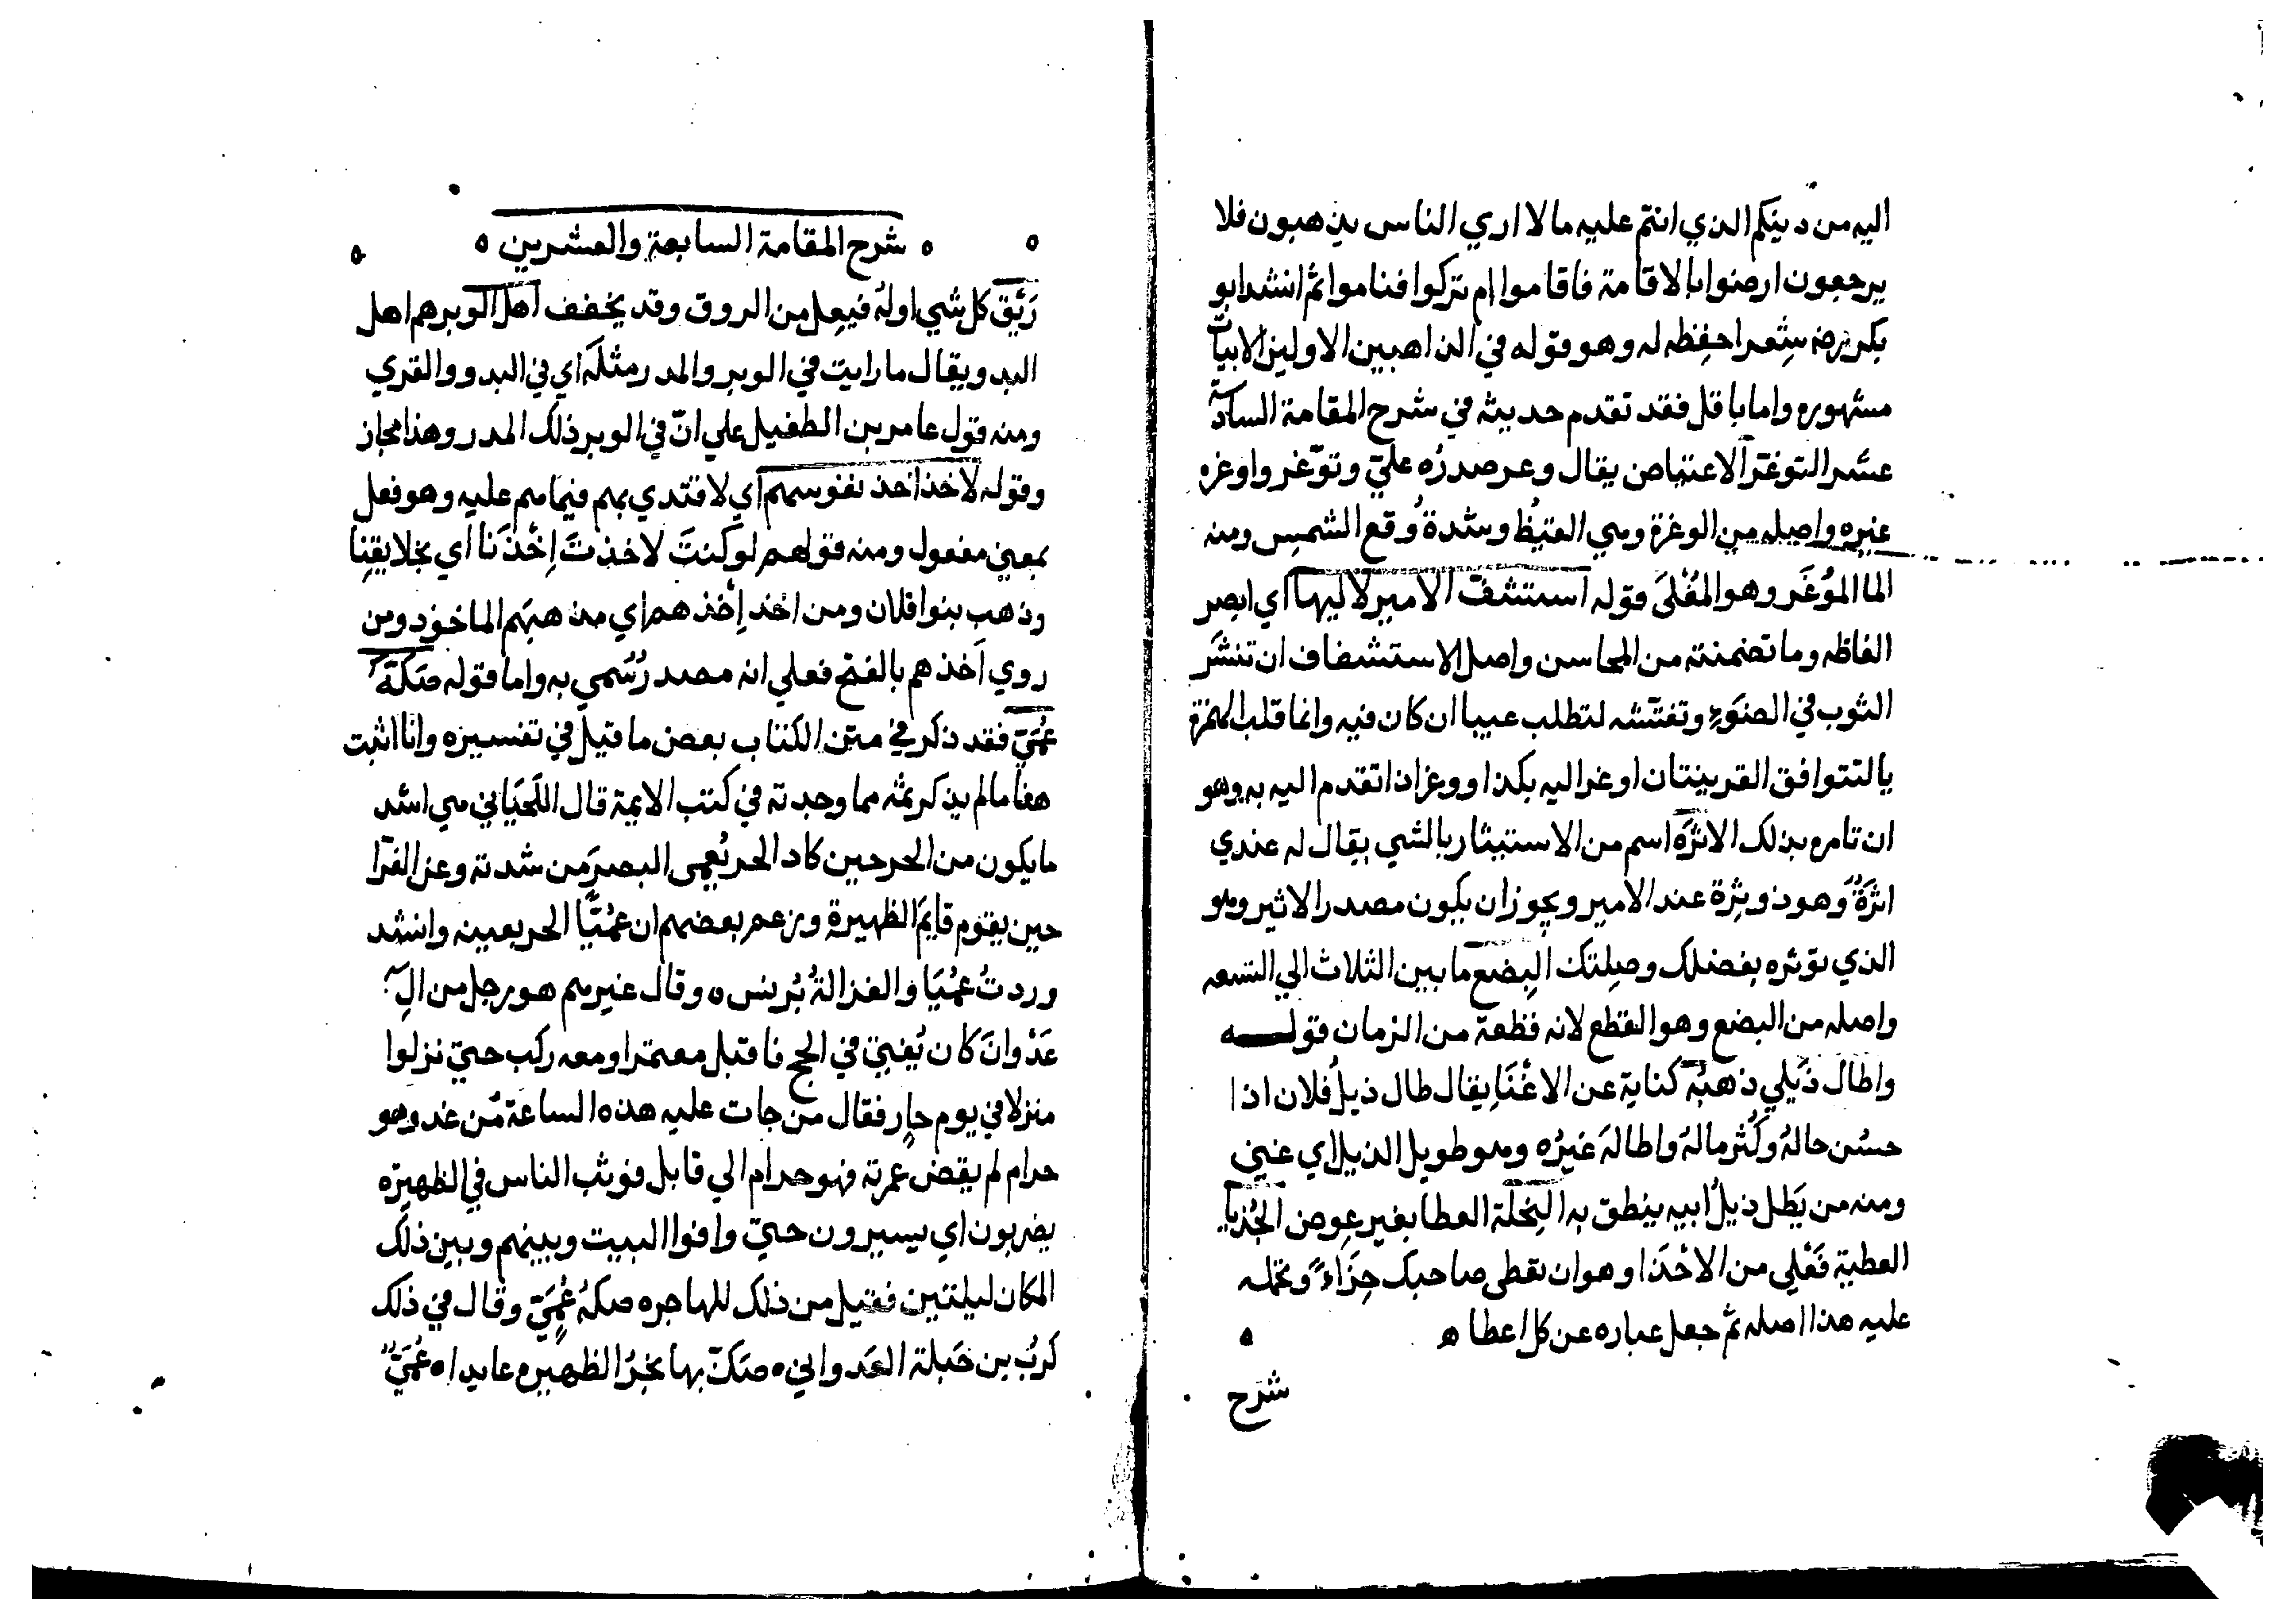 اليه من دينكم الذي انتم عليه مالا اري الناس يذهبون فلا
يرجعون ارضوا بالاقامة فاقاموا ام تركوا فناموا ثم انشد ابو
بكر رضه شعرا حفظه له وهو قوله في الذاهبين الاولين الابيات
مشهوره واما باقل فقد تقدم حديثه في شرح المقامة السادسة
عشر التوغّر الاعتياص يقال وغر صدرُه عليّ وتوّغر واوغره
غيره واصله من الوغرة وهي القيظ وشدة وُقع الشمس ومنه
الما الموُغَر وهو المُغْلَى قوله استشفّ الامير لاليها اي ابصر
الفاظه وما تضمنته من المحاسن واصل الاستشفاف ان تنشَر
الثوب في الضوَء وتفتّشه لتطلب عيبا ان كان فيه وانما قلب الهمزة
يا لتتوافق القرينتان اوغر اليه بكذا ووغر اذا تقدم اليه به وهو
ان تامره بذلك الاثرَة اسم من الاستيثار بالشي يقال له عندي
اثرَةٌ وهو ذو يثِرة عند الامير ويجوز ان يكون مصدر الاثير وهو
الذي توثره بفضلك وصِلتك البِضع ما بين الثلاث الي التسعه
واصله من البضع وهو القطع لانه قطعة من الزمان قولـــه
واطال ذَيلي ذهبُه كناية عن الاغْنَا يقال طال ذيلُ فلان اذا
حسُن حالهُ وكُثر مالهُ واطالهَ غيرُه وهو طويل الذيل اي غني
ومنه من يَطل ذيلُ ابيه ينطق به النِحلة العطا بغير عِوض الجُذيا
العطية فَعْلي من الاحْذا وهو ان تعطى صاحبك جِزَاءً وتحمله
عليه هذا اصله ثم جعل عباره عن كل اعطا ه
شرح
شرح المقامة السابعة والعشرين
رَيّق كل شي اولهُ فيعِل من الروق وقد يخفف اهل الوبر هم اهل
البدو ويقال ما رايت في الوبر والمدر مثلَه اي في البدو والقري
ومنه قول عامر بن الطفيل علي انّ في الوبر ذلك المدر وهذا مجاز
وقوله لاخذ اخذ نفوسهم اي لاقتدي بهم فيما هم عليه وهو فعل
بمعني مفعول ومنه قولهم لو كنتَ لاخذتَ اِخْذَنا اي بخلايقِنا
وذهب بنوا فلان ومن اخذ اِخْذهم اي مذهبَهم الماخوذ ومن
روي اَخذهم بالفتح فعلي انه مصدر سُمي به واما قوله صَكّةَ
عُمَيّ فقد ذكر في متن الكتاب بعض ما قيل في تفسيره وانا اثبت
هنا ما لم يذكر ثمّه مما وجدته في كتب الايمة قال اللحَياني هي اشد
ما يكون من الحر حين كاد الحر يُعمِي البصرَ من شدته وعن الفرّا
حين يقوم قايمَ الظهيرة وزعم بعضهم ان عُمَيًّا الحر بعينه وانشد
وردتُ عُمَيا والغزالةُ بُرنس ه وقال غيرهم هو رجل من الِـ
عَدْوانَ كان يُفتي في الحج فاقبل معتمرا ومعه ركب حتي نزلوا
منزلا في يوم حارٍ فقال من جات عليه هذه الساعة مّن غد وهو
حرام لم يقض عمرته فهو حرام الي قابل فوثب الناس في الظهيره
يضربون اي يسيرون حتيّ وافوا البيت وبينهم وبين ذلك
المكان ليلتين فقيل من ذلك للهاجره صكةُ عُميّ وقال في ذلك
كربُ بن جَبلة العَدواني ه صَكّ بها نحِرُ الظهيره عايدا ه عُمَيٌّ